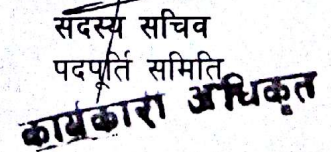 सदस्य सचिव
पदपूर्ति समिति
कार्यकारा अधिकृत